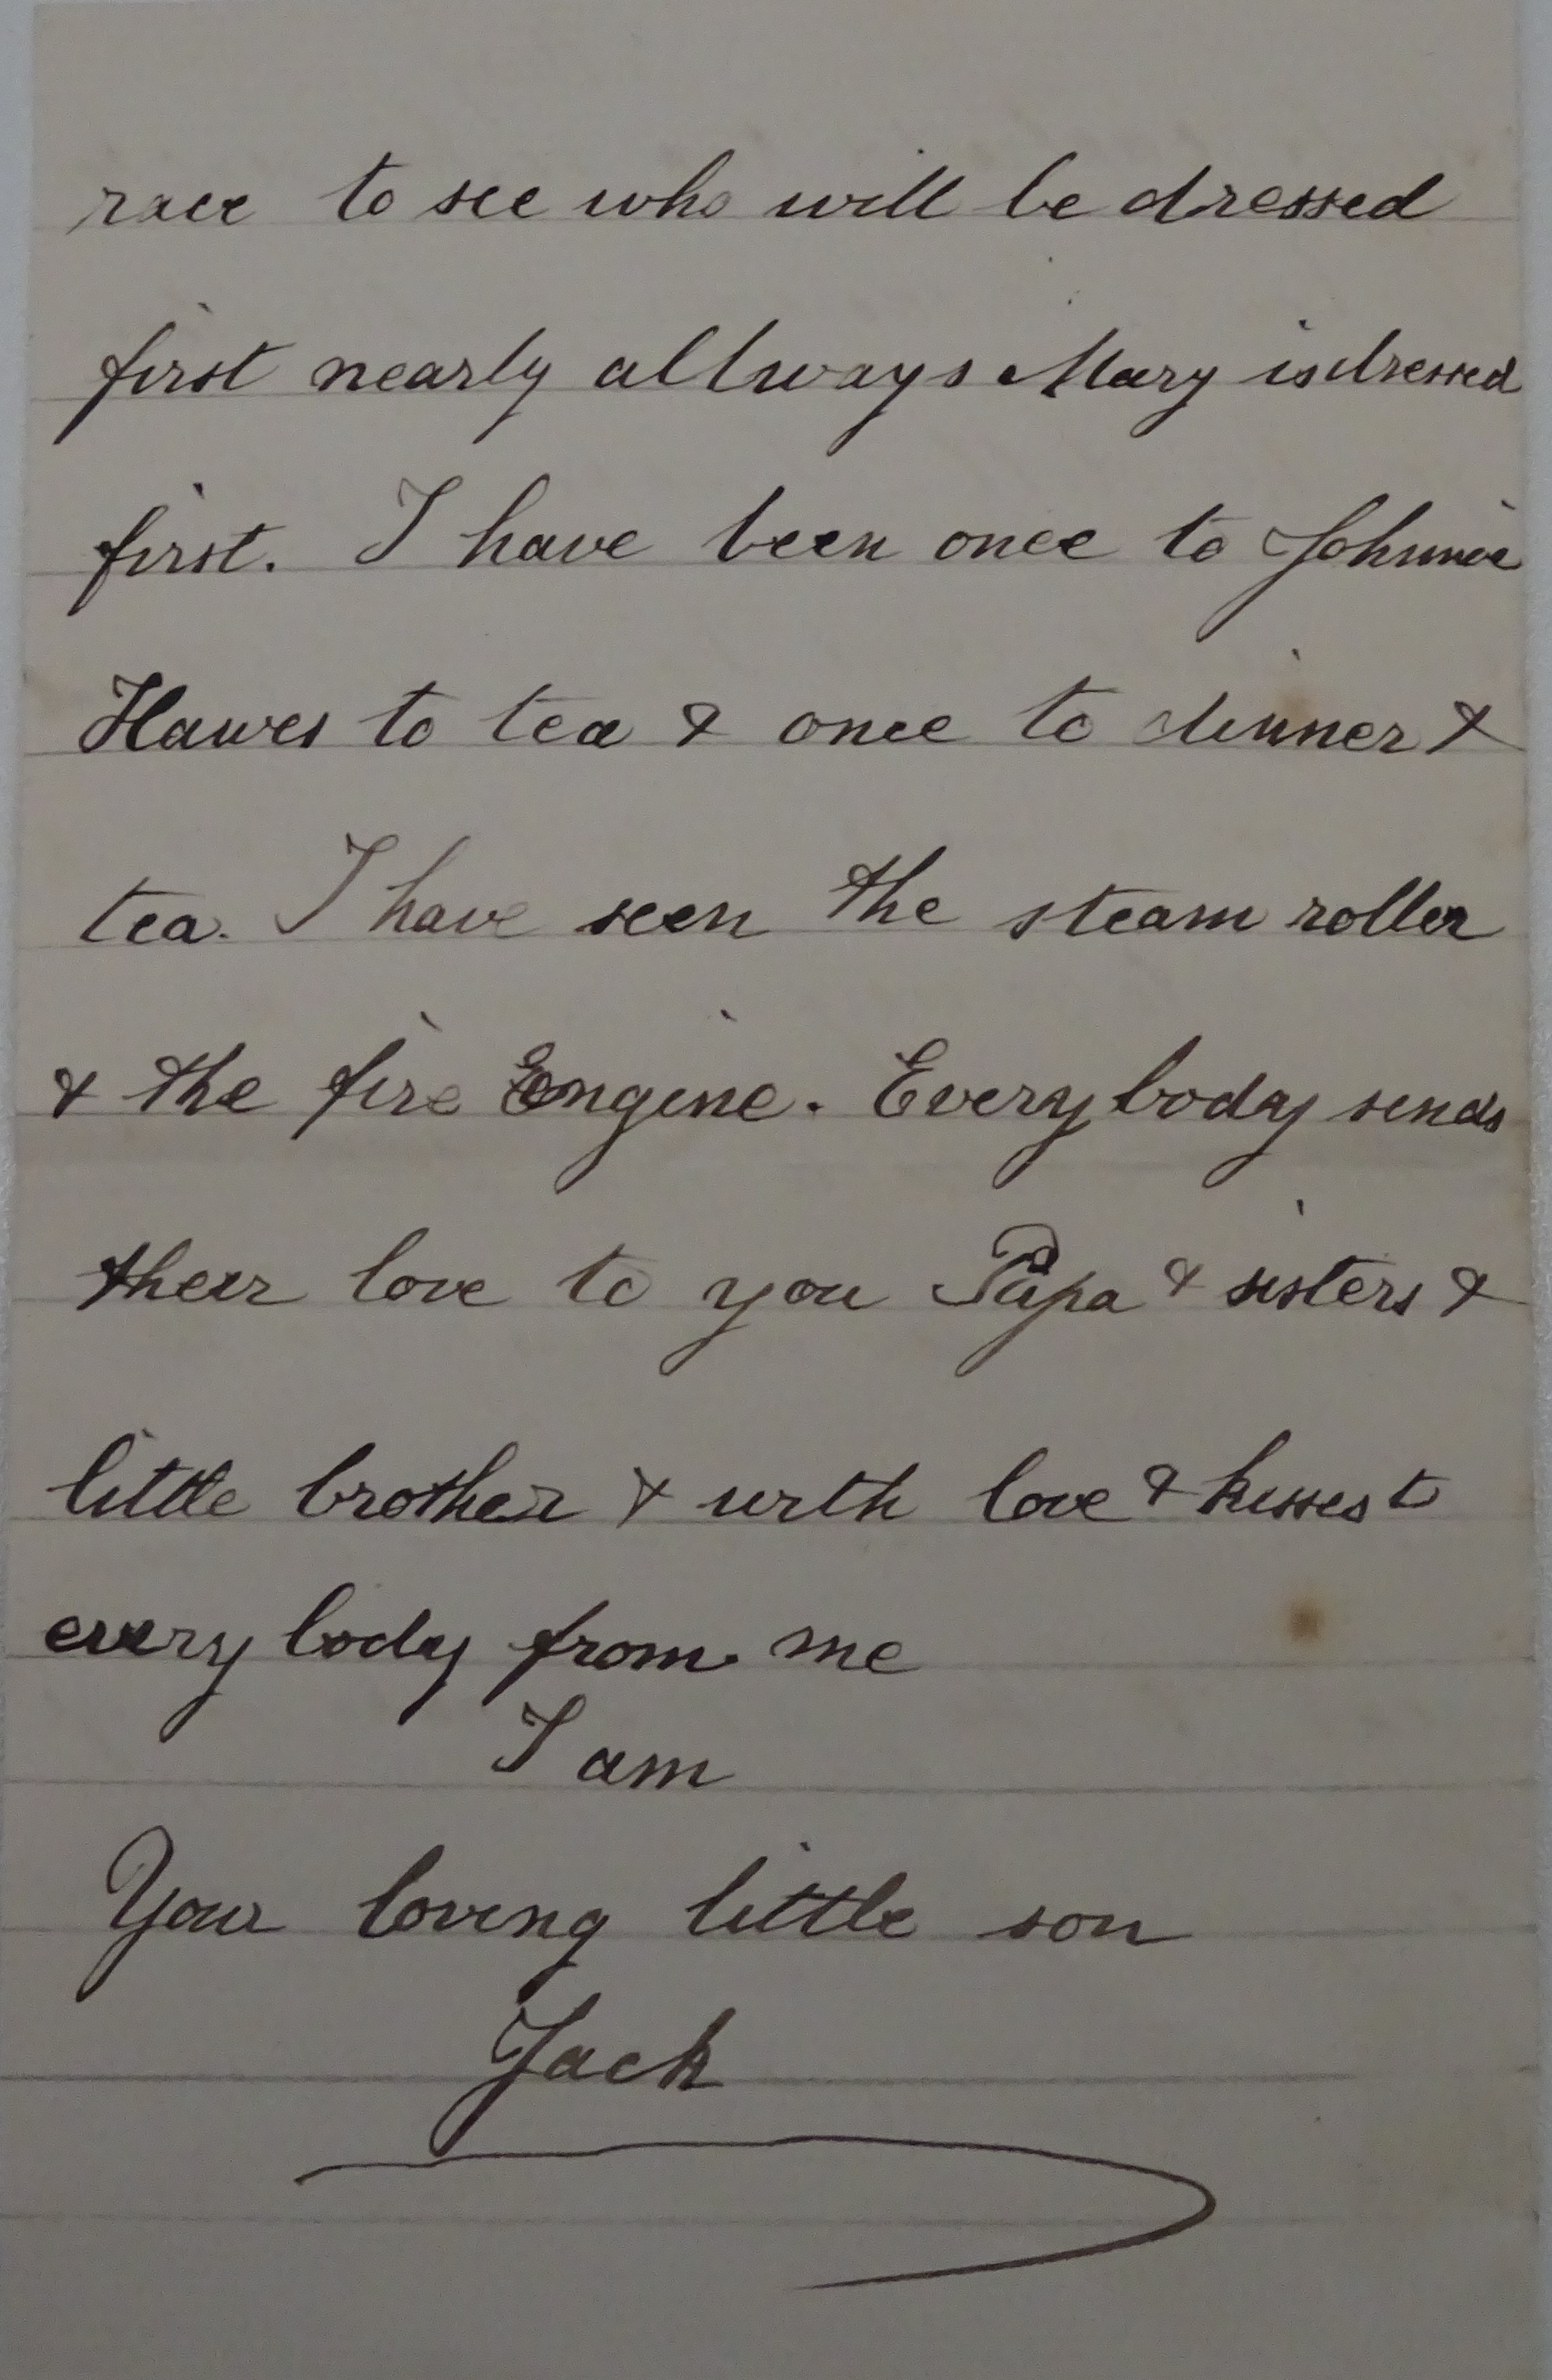 race to see who will be dressed
first nearly allways Mary is dressed
first. I have been once to Johnnie
Hawes to tea & once to dinner &
tea. I have seen the steam roller
& the fire Engine. Every body sends
their love to you Papa & sisters &
little brother & with love & kisses to
every body from me
I am
Your loving little son
Jack